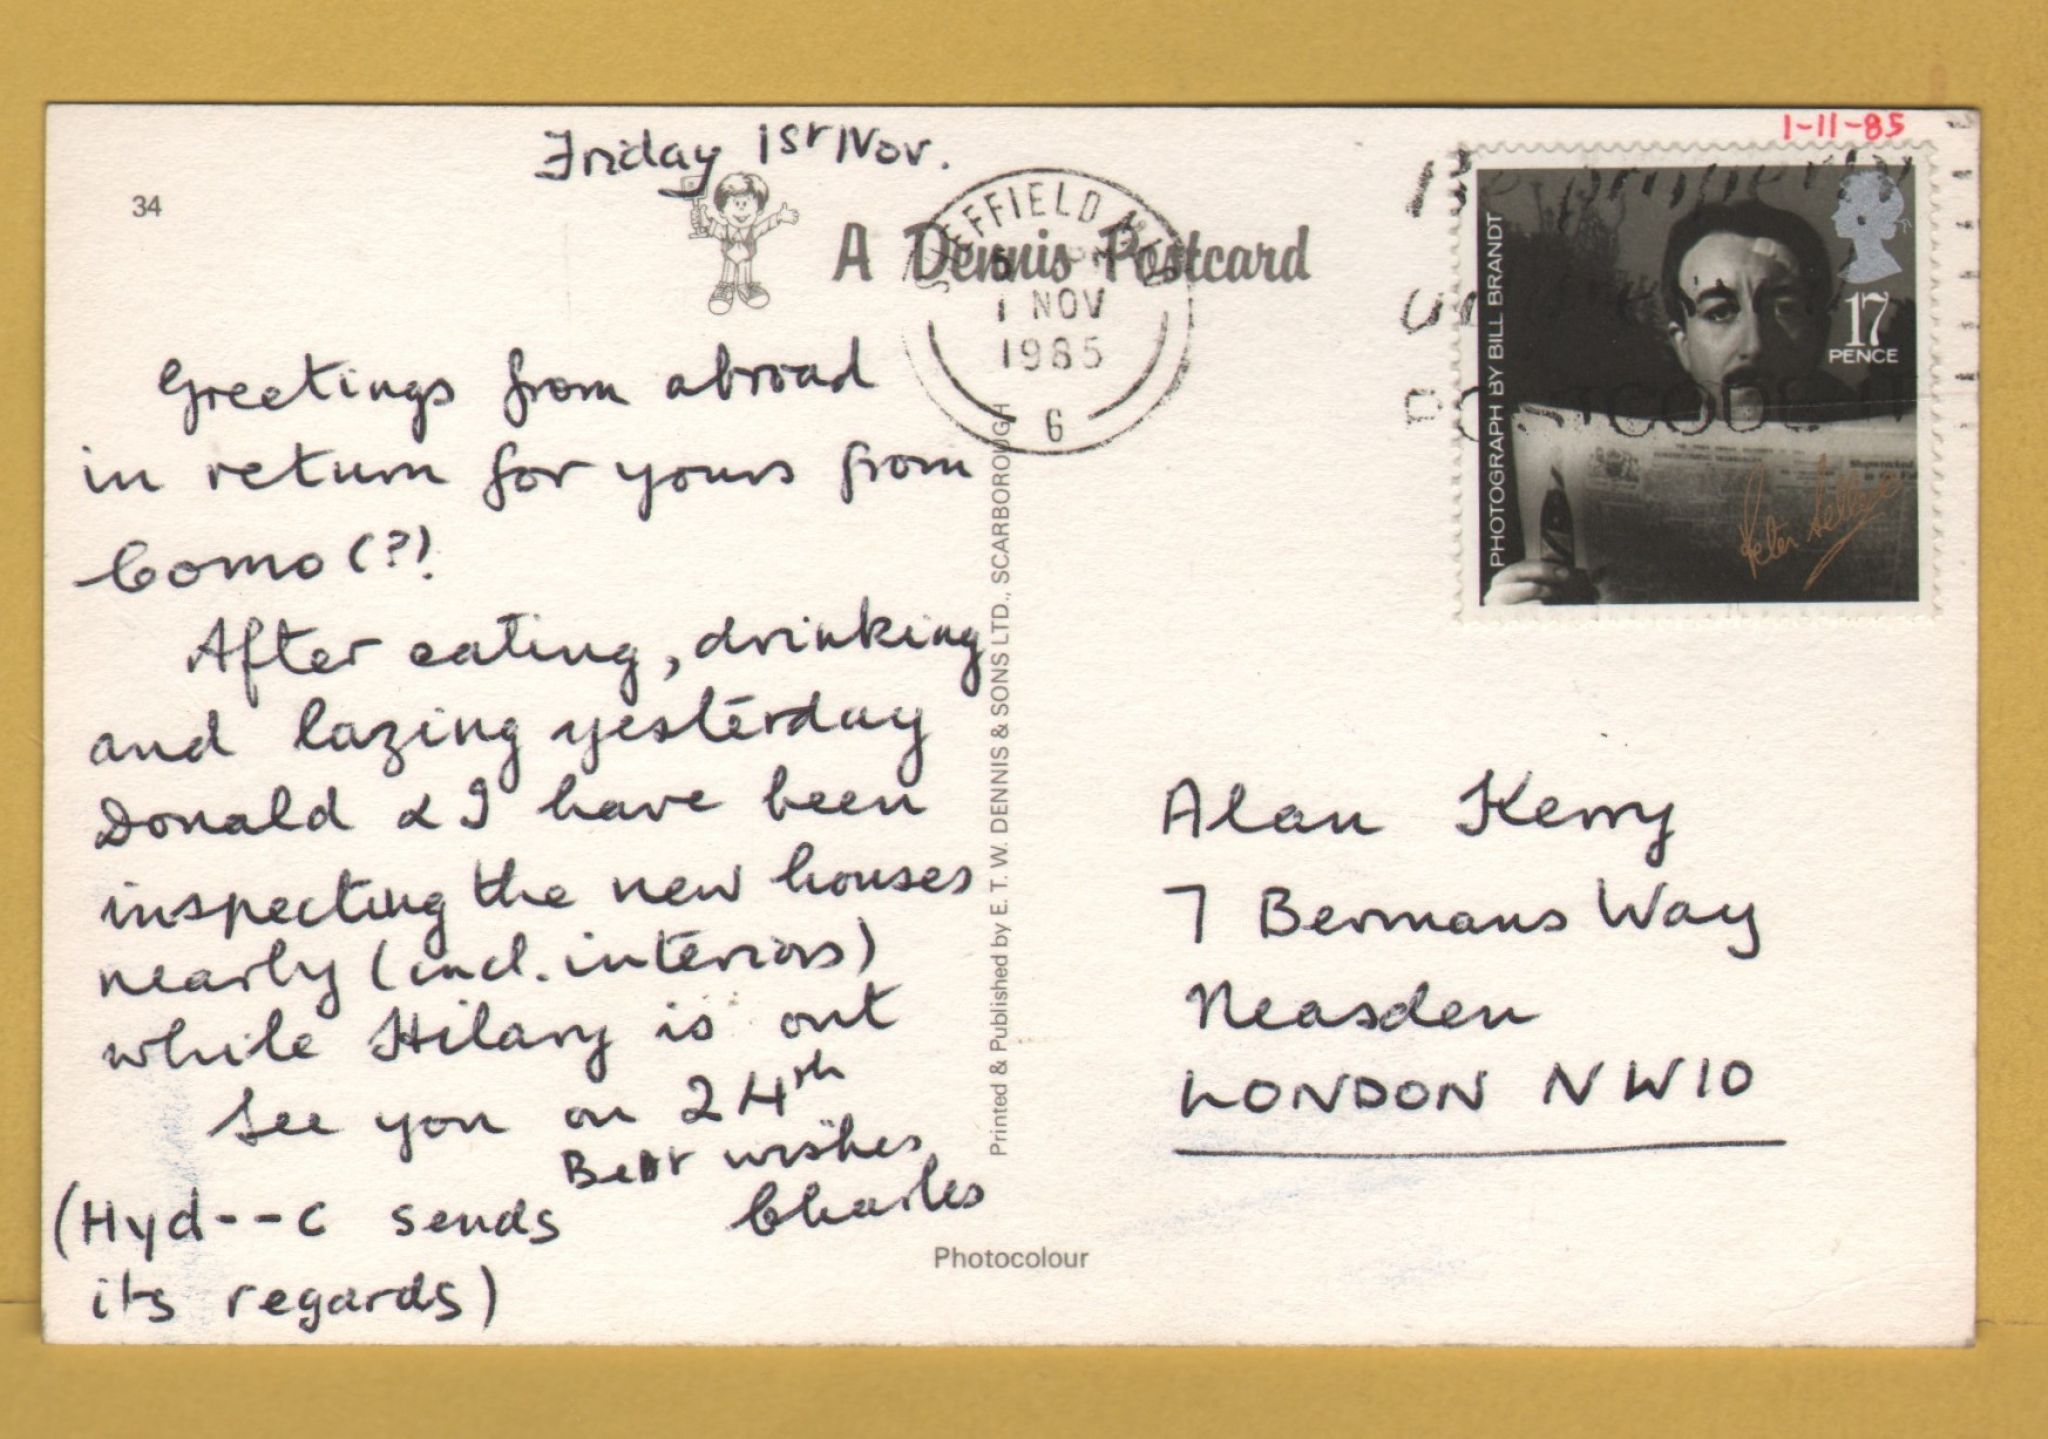 1-11-85
Friday 1st Nov.
34
A Dennis Postcard
SHEFFIELD
1 NOV
1985
6
POSTCODE
PHOTOGRAPH BY BILL BRANDT
17
PENCE
Peter Sellers
Greetings from abroad
in return for yours from
Como (?).
After eating, drinking
and lazing yesterday
Donald & I have been
inspecting the new houses
nearly (incl. interiors)
while Hilary is out
See you on 24th
Best wishes
Charles
(Hyd--c sends
its regards)
Printed & Published by E. T. W. DENNIS & SONS LTD., SCARBOROUGH
Photocolour
Alan Kerry
7 Bermans Way
Neasden
LONDON NW10